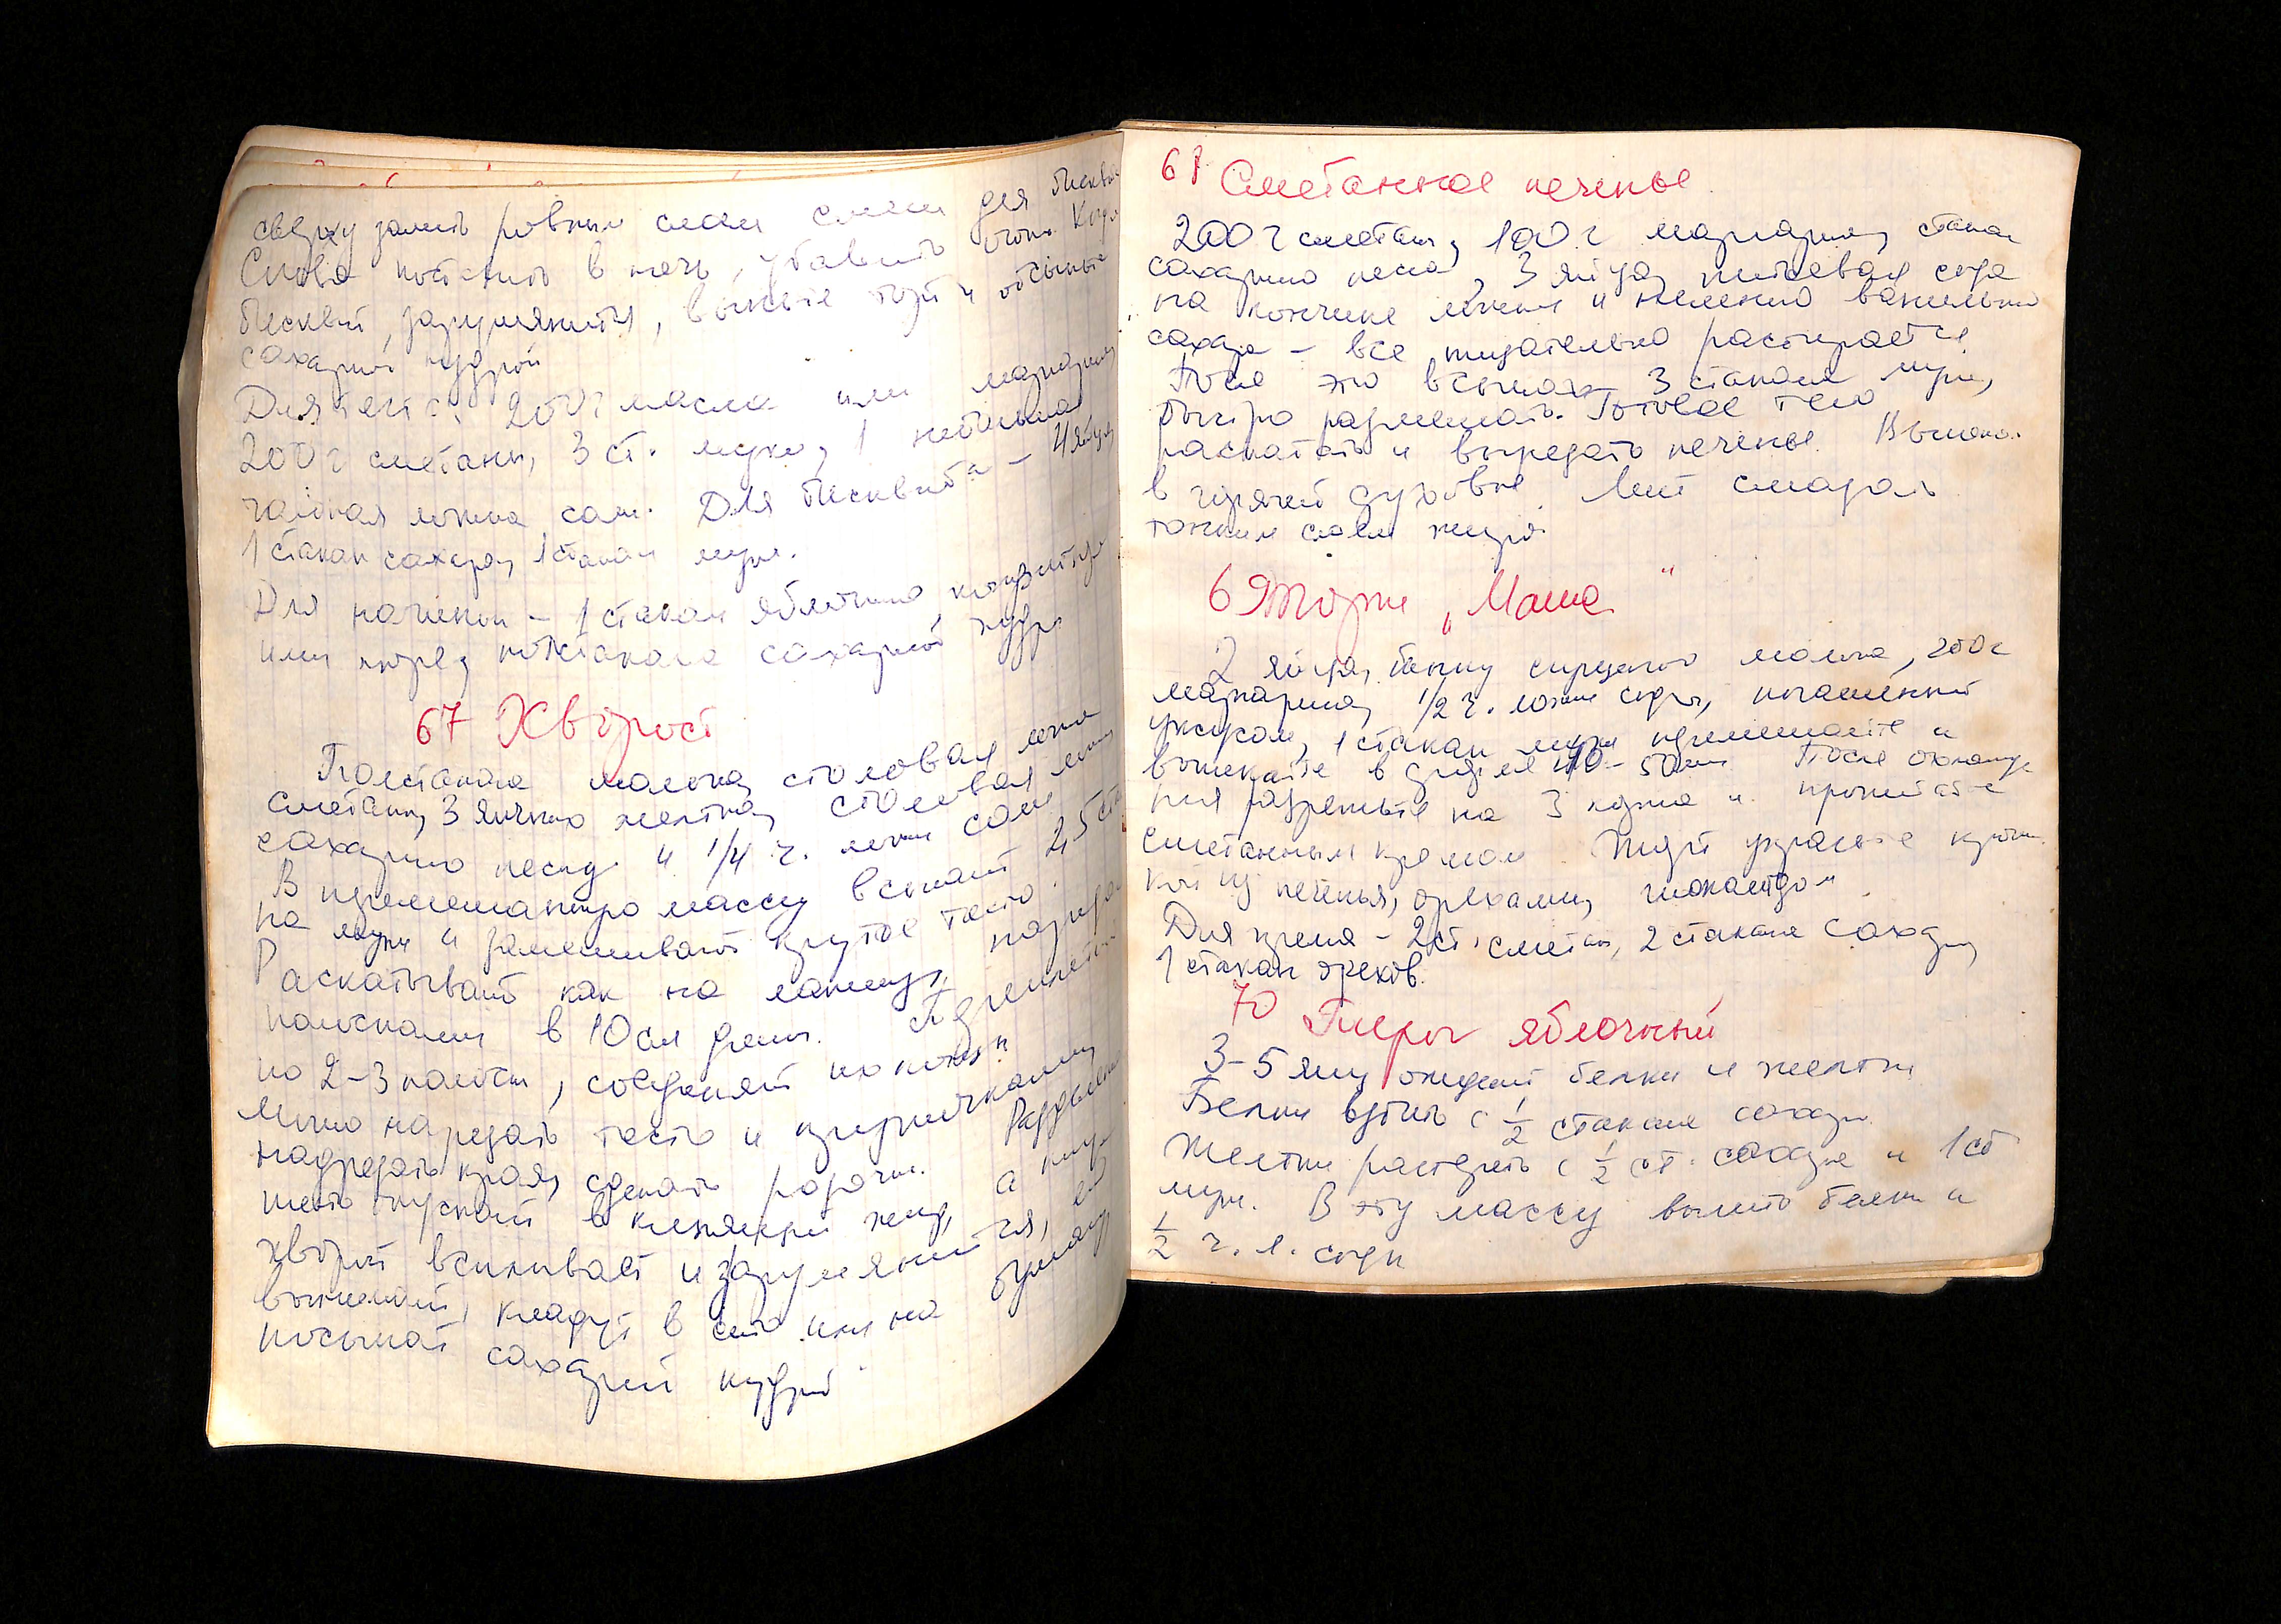 сверху залить ровным слоем смеси для бискви
Снова поставить в печь, убавить огонь. Когда
бисквит зарумянится, выньте торт и обсыпьте
сахарной пудрой
Для теста: 200 г масла или маргарина,
200 г сметаны, 3 ст. муки, 1 небольшая
чайная ложка соли. Для бисквита – 4 яйца,
1 стакан сахара, 1 стакан муки.
Для начинки – 1 стакан яблочного конфитюра
или пюре, полстакана сахарной пудры
67 Хворост
Полстакана молока, столовая ложка
сметаны, 3 яичных желтка, столовая ложка
сахарного песку и 1/4 ч. ложки соли
В перемешанную массу всыпают 2,5 ста
на муки и замешивают крутое тесто.
Раскатывают как на лапшу, нарезают
полосками в 10 см длины. Переплетают
по 2–3 полоски, соединяют их концы
надрезать края, сделать розочки.
тесто опускают в кипящий жир, а когда
хворост всплывает и зарумянится, его
вынимают, кладут в сито или на бумагу
посыпают сахарной пудрой
68 Сметанное печенье
200 г сметаны, 100 г маргарина, стакан
сахарного песка, 3 яйца, питьевая сода
на кончике ложки и немного ванильного
сахара – все тщательно растирается
После этого всыпать 3 стакана муки,
быстро размешать. Готовое тесто
раскатать и вырезать печенье. Выпекать
в горячей духовке. Лист смазать
тонким слоем жира.
69 Торт „Маша"
2 яйца, банку сгущеного молока, 200 г
маргарина, 1/2 ч. ложки соды, погашенной
уксусом, 1 стакан муки перемешайте и
выпекайте в духовке 40–50 мин После охлажде
ния разрежьте на 3 коржа и пропитайте
сметанным кремом. Торт украсьте крош
кой из печенья, орехами, шоколадом.
Для крема – 2 ст. сметаны, 2 стакана сахару,
1 стакан орехов.
70 Пирог яблочный
3–5 яиц отделит белки и желтки
Белки взбить с 1/2 стакана сахара.
Желтки растереть с 1/2 ст. сахара и 1 ст
муки. В эту массу вылить белки и
1/2 ч. л. соды